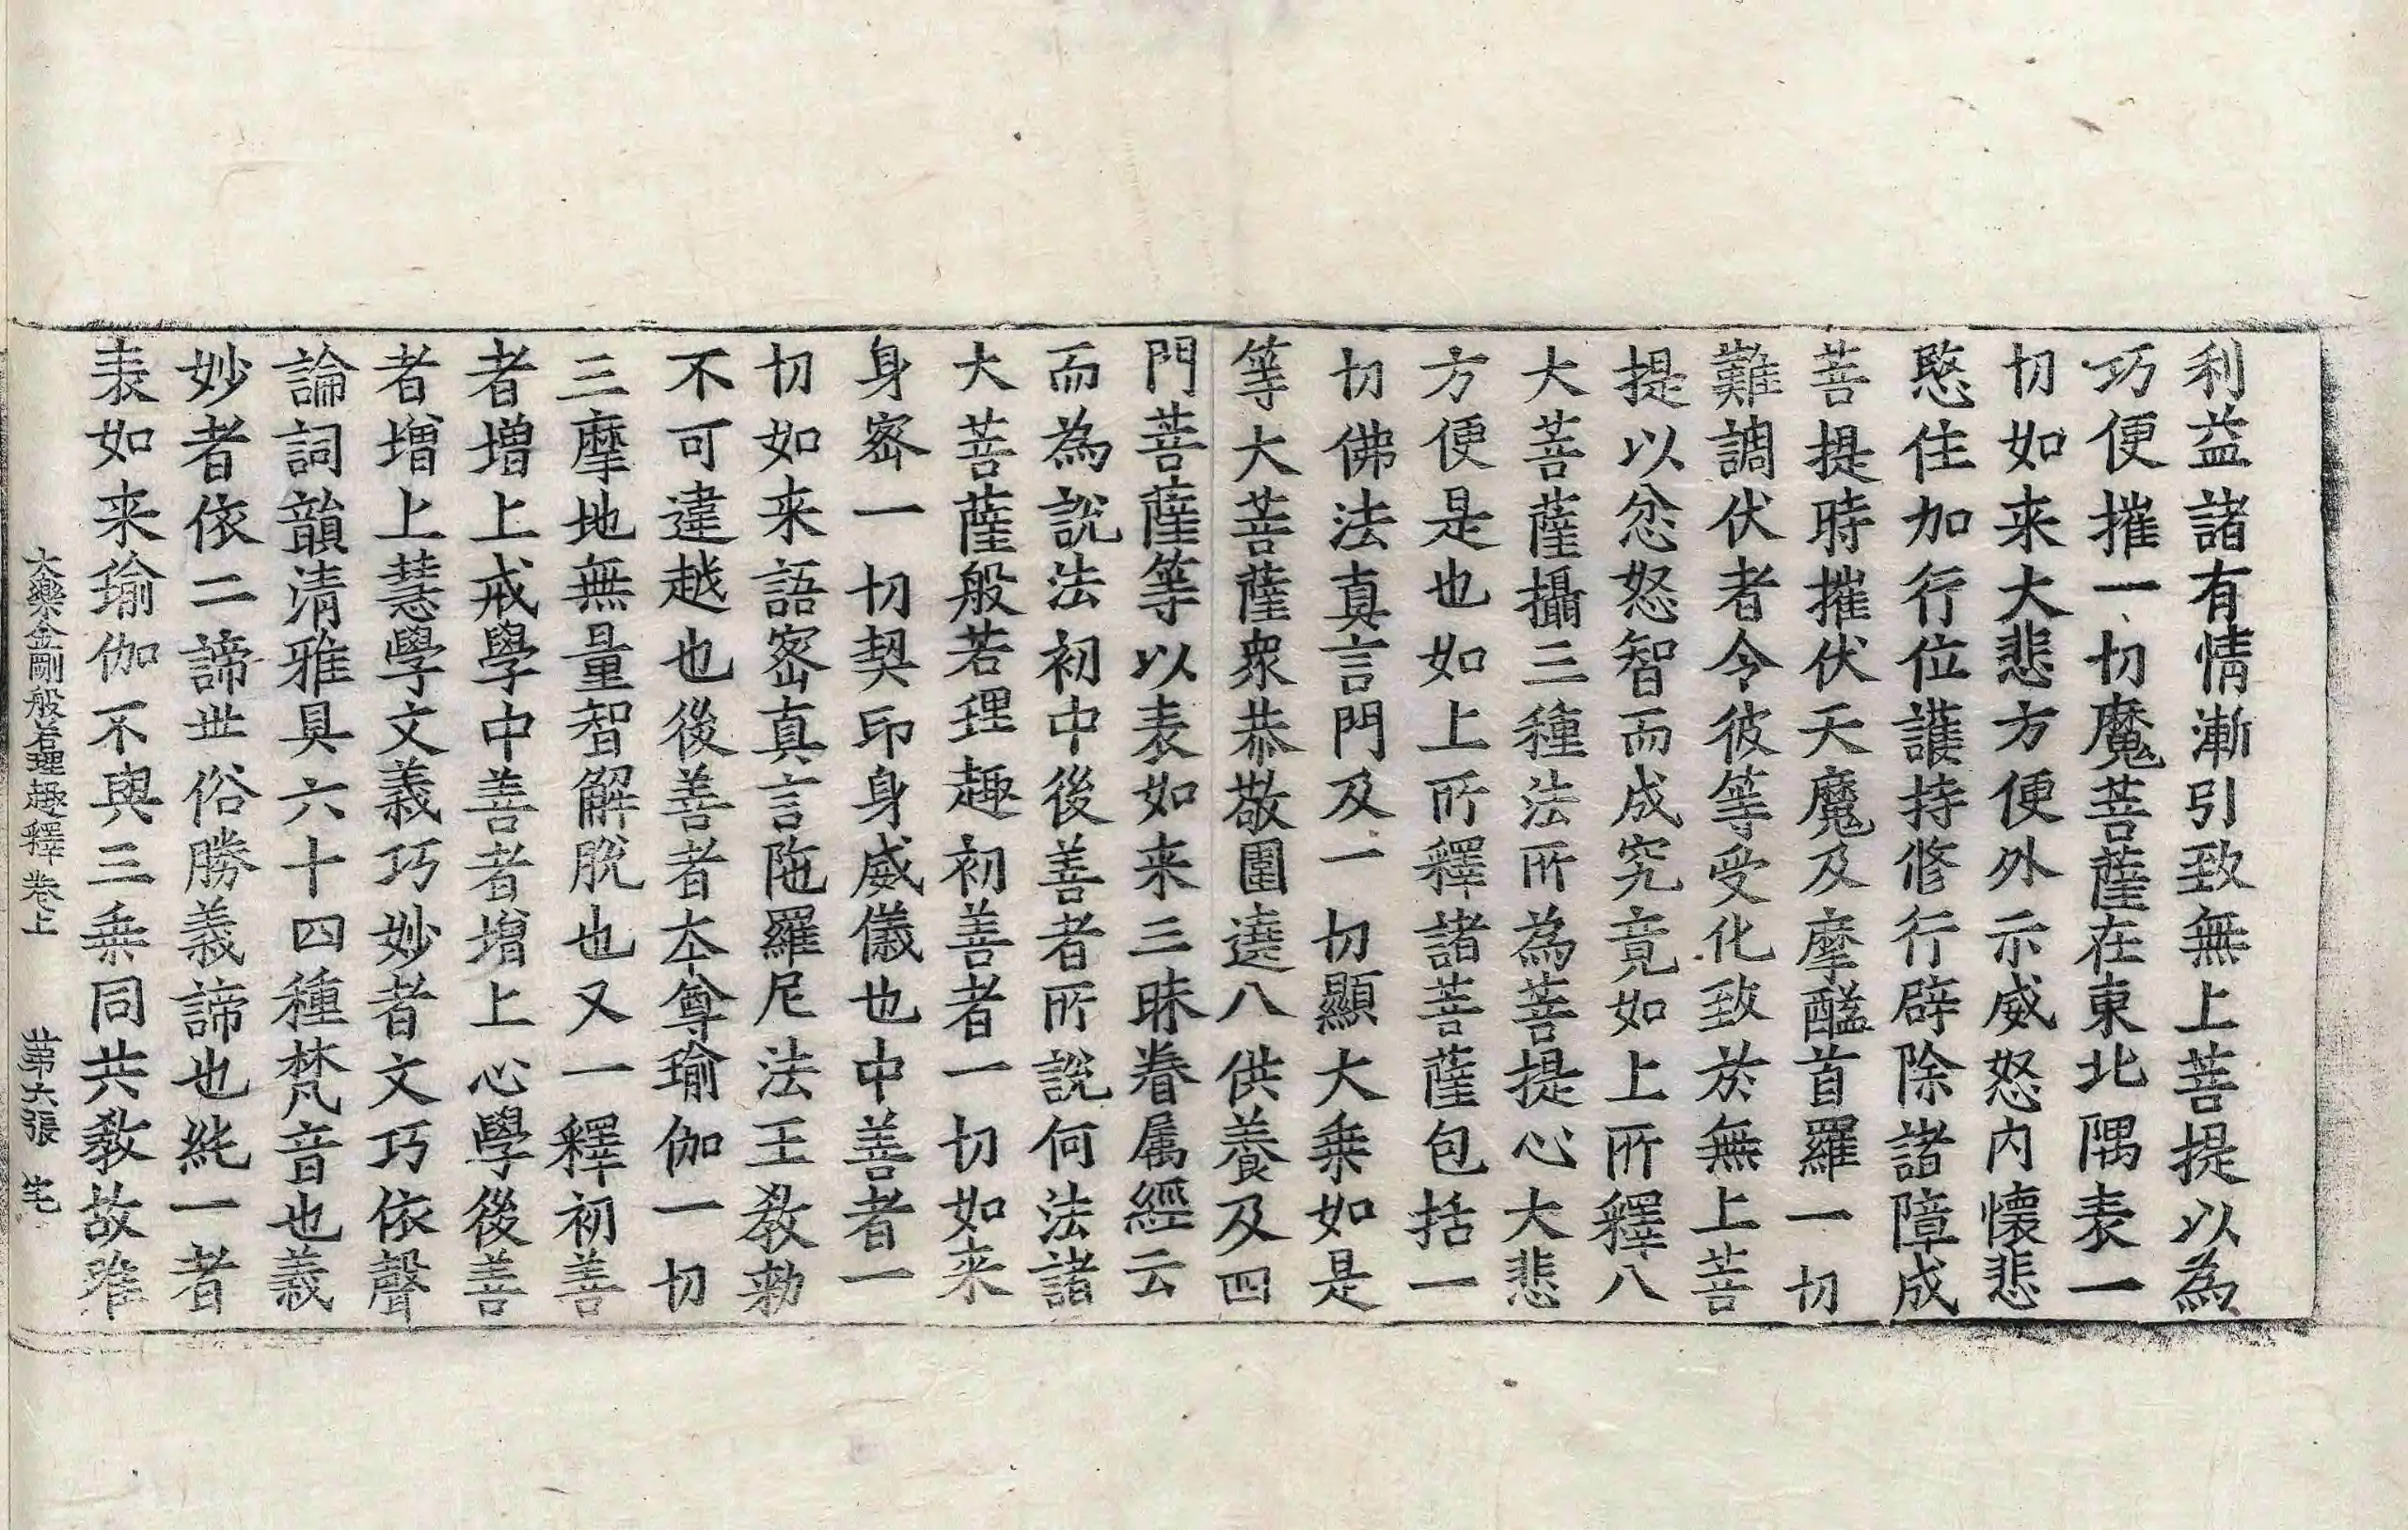 利益諸有情漸引致無上菩提以為
巧便摧一切魔菩薩在東北隅表一
切如来大悲方便外示威怒内懷悲
愍住加行位護持修行辟除諸障成
菩提時摧伏天魔及摩醯首羅一切
難調伏者令彼等受化致於無上菩
提以忿怒智而成究竟如上所釋八
大菩薩攝三種法所為菩提心大悲
方便是也如上所釋諸菩薩包括一
切佛法真言門及一切顯大乗如是
等大菩薩衆恭敬圍遶八供養及四
門菩薩等以表如来三昧眷属經云
而為說法初中後善者所說何法諸
大菩薩般若理趣初善者一切如来
身宻一切契印身威儀也中善者一
切如来語宻真言陁羅尼法王教勑
不可違越也後善者夲尊瑜伽一切
三摩地無量智解脫也又一釋初善
者增上戒學中善者增上心學後善
者增上慧學文義巧妙者文巧依聲
論詞韻清雅具六十四種梵音也義
妙者依二諦丗俗勝義諦也純一者
表如来瑜伽不與三乗同共教故唯
大樂金剛般若理趣釋卷上　第六張　宅